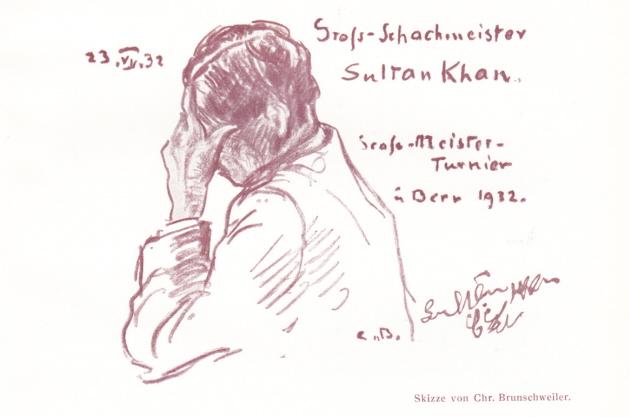 23.VII.32
Gross-Schachmeister
Sultan Khan.
Gross-Meister-
Turnier
in Bern 1932.
C.B.
Sultan Khan
Skizze von Chr. Brunschweiler.